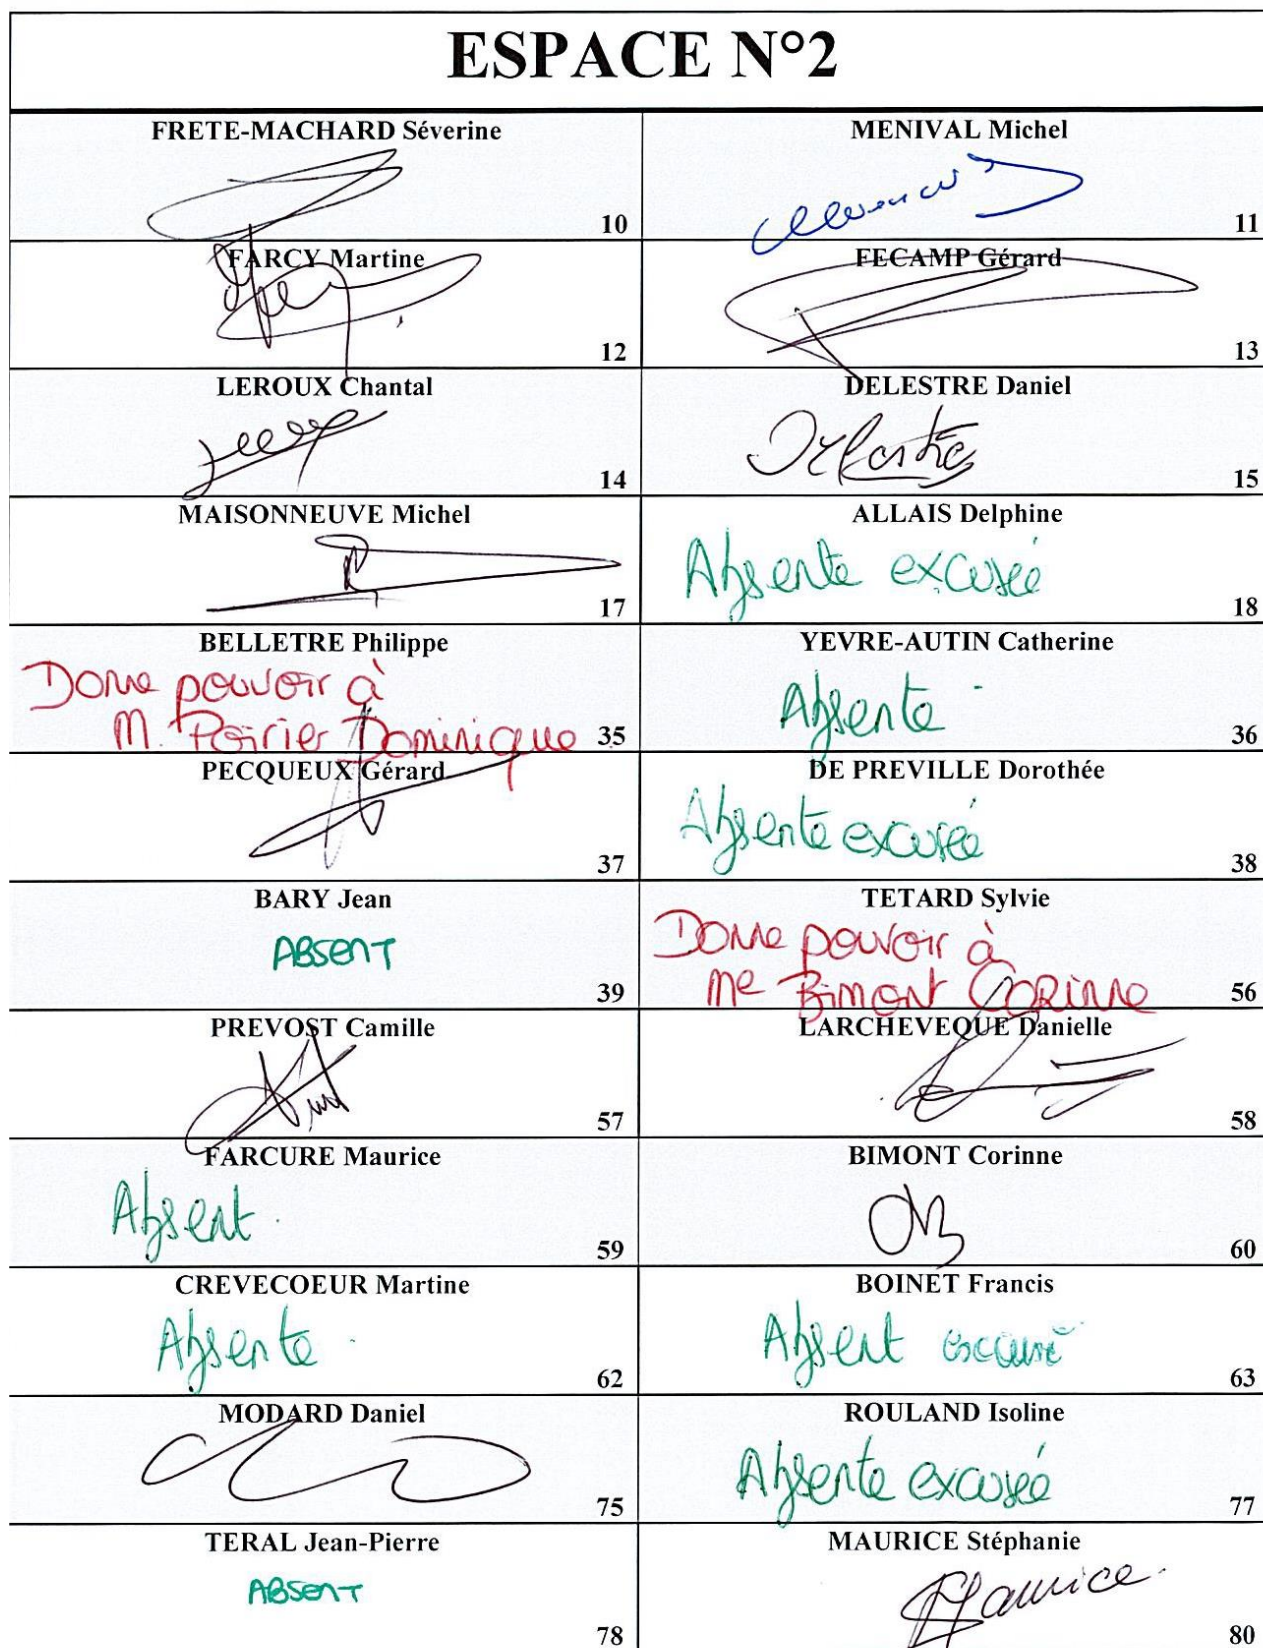 ESPACE N°2
FRETE-MACHARD Séverine
10
MENIVAL Michel
11
FARCY Martine
12
FECAMP Gérard
13
LEROUX Chantal
14
DELESTRE Daniel
15
MAISONNEUVE Michel
17
ALLAIS Delphine
Absente excusée
18
BELLETRE Philippe
Donne pouvoir à
M. Poirier Dominique
35
YEVRE-AUTIN Catherine
Absente
36
PECQUEUX Gérard
37
DE PREVILLE Dorothée
Absente excusée
38
BARY Jean
ABSENT
39
TETARD Sylvie
Donne pouvoir à
Me Bimont Corinne
56
PREVOST Camille
57
LARCHEVEQUE Danielle
58
FARCURE Maurice
Absent
59
BIMONT Corinne
60
CREVECOEUR Martine
Absente
62
BOINET Francis
Absent excusé
63
MODARD Daniel
75
ROULAND Isoline
Absente excusée
77
TERAL Jean-Pierre
ABSENT
78
MAURICE Stéphanie
Maurice
80